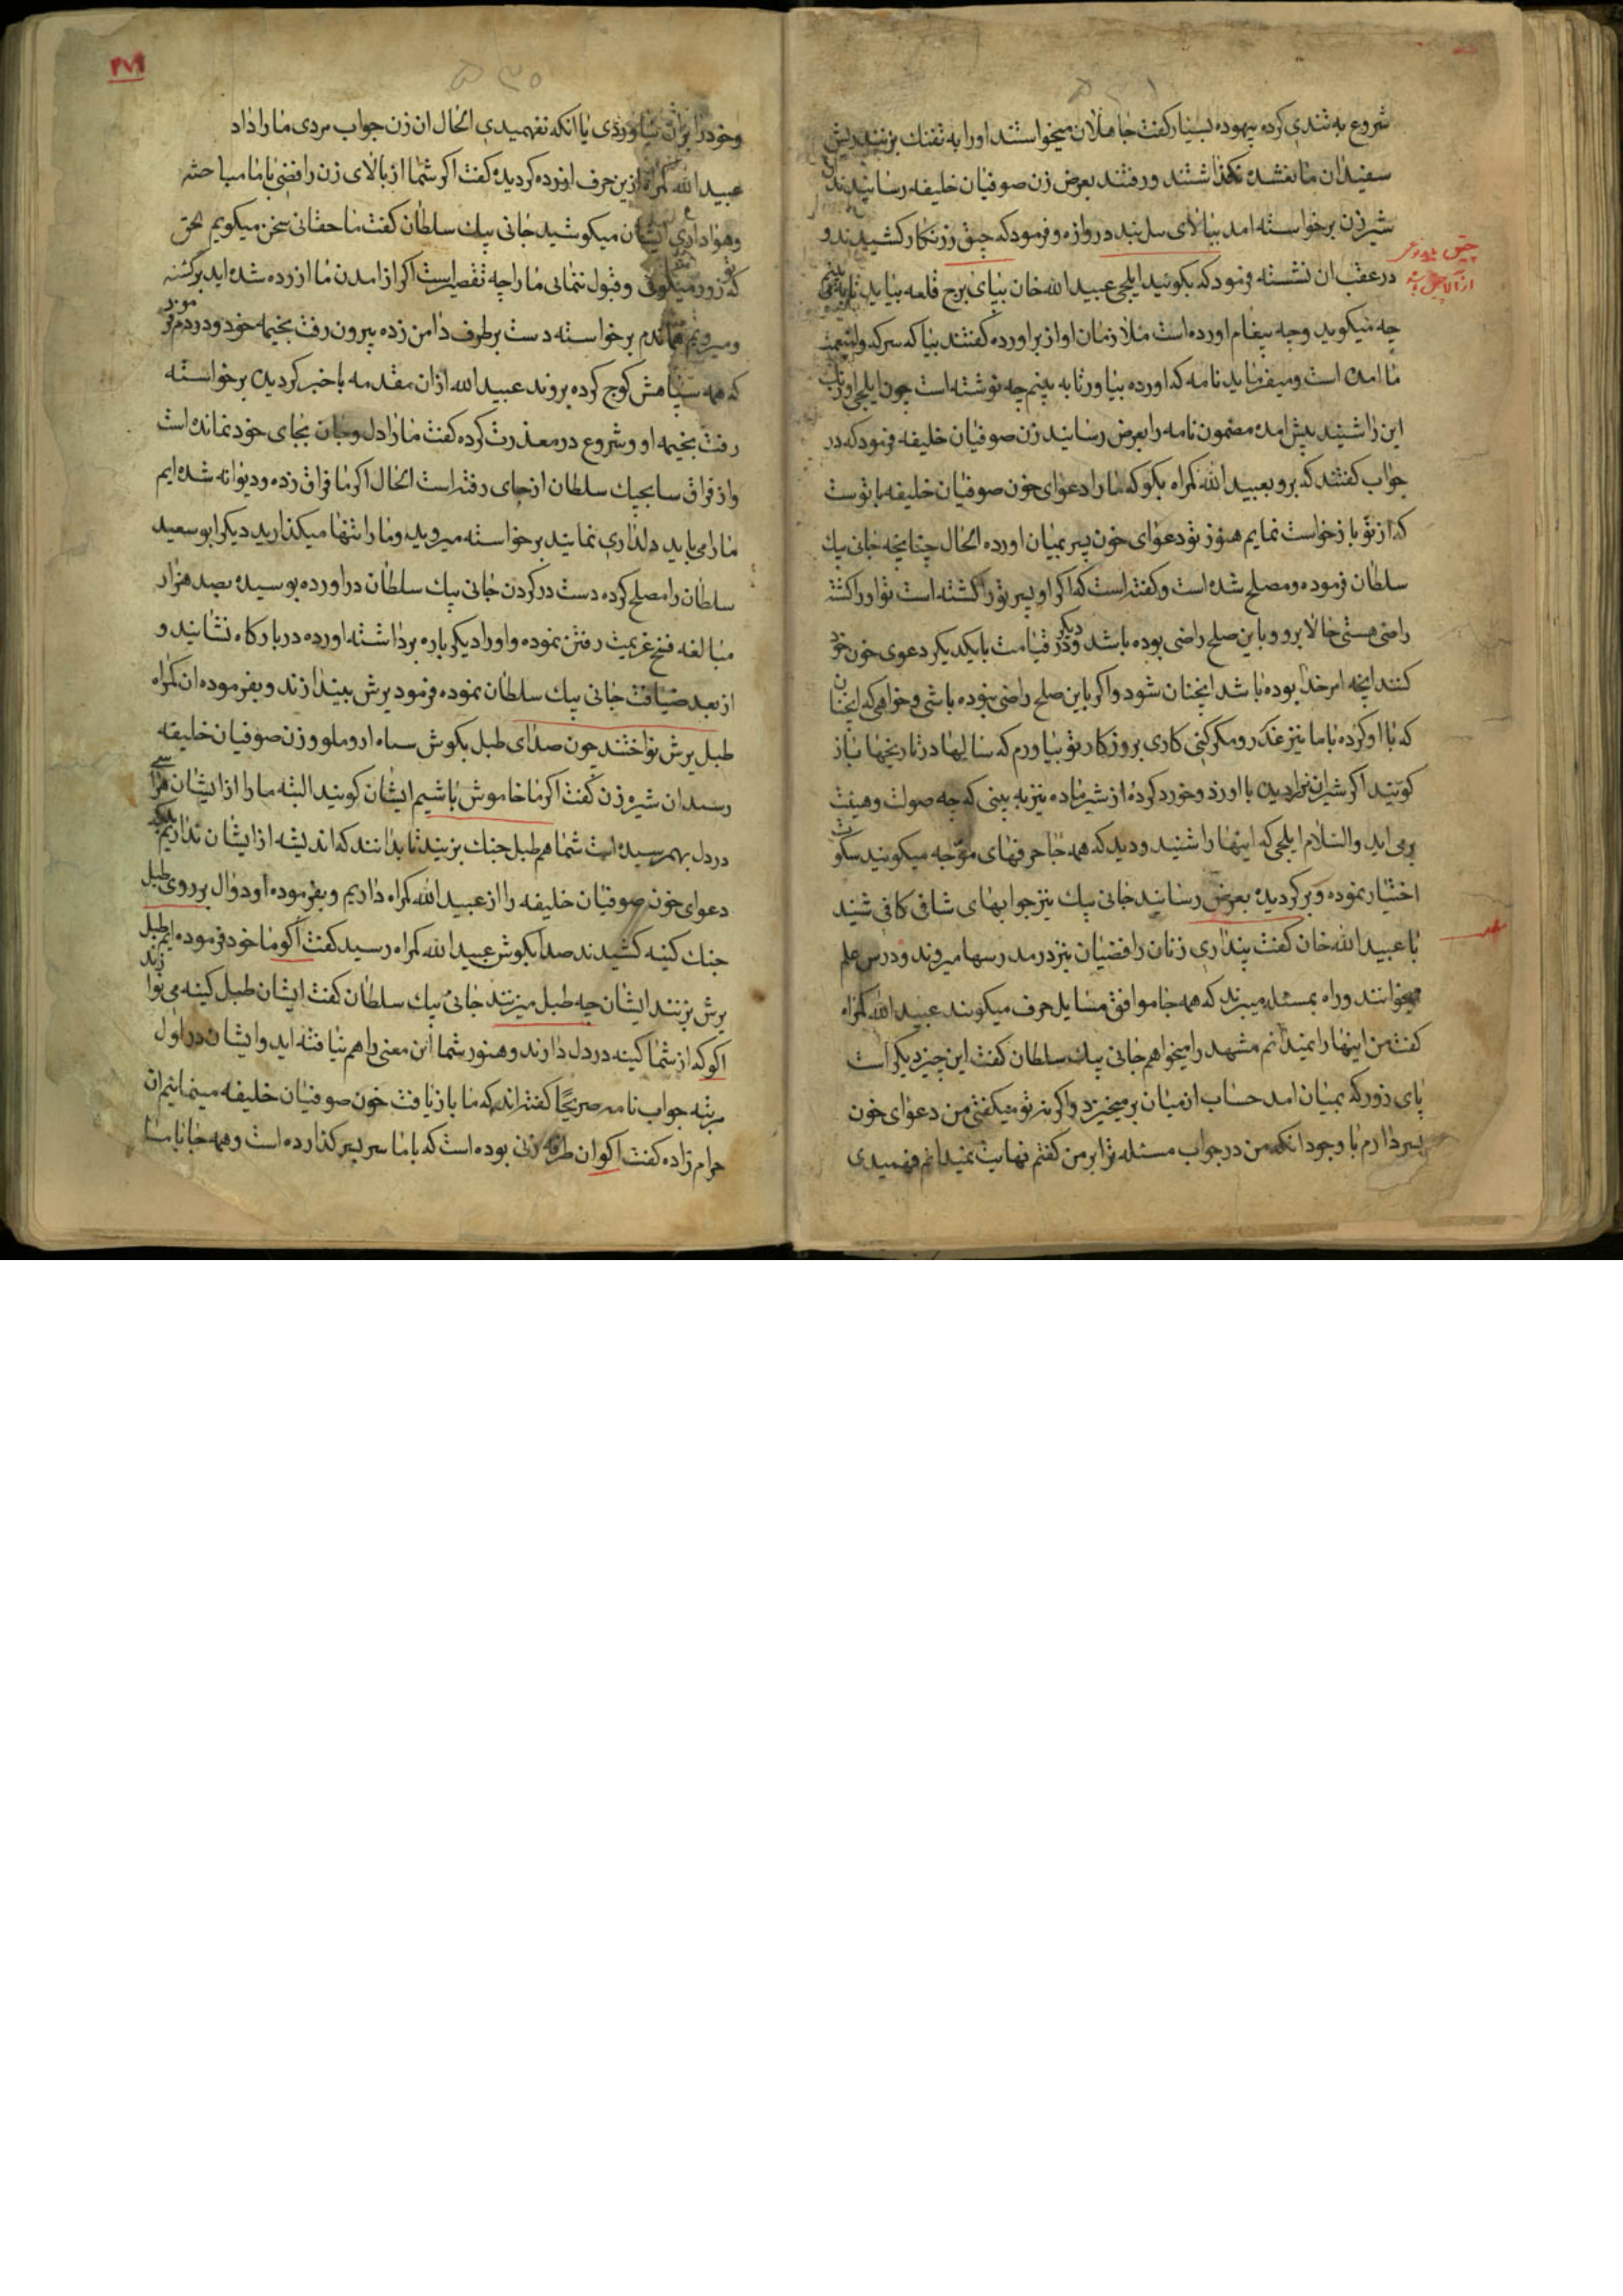 شروع به تندی کرده بیهوده بسیار گفت جاهلان میخواستند او را به تفنک بزنند ریش
سفیدان مانع شده نکذاشتند و رفتند بعرض زن صوفیان خلیفه رسانیدند ان
شیرزن برخواسته امد ببالای سل بند دروازه و فرمود که چیق زرنکار کشیدند و
در عقب ان نشسته فرمود که بکوئید ایلچی عبید الله خان بپای برج قلعه بیاید تا به بینم
چه میکوید و چه پیغام اورده است ملازمان اواز براورده کفتند بیا که سرکد
ما امده است و میفرماید نامه که اورده بیاور تا به بینم چه نوشته است چون ایلچی
این را شنید پیش امده مضمون نامه را بعرض رسانید زن صوفیان خلیفه فرمود که در
جواب کفتند که برو بعبید الله کمراه بکو که ما را دعوای خون صوفیان خلیفه با توست
که از تو بازخواست نمایم هنوز تو دعوای خون پسر بمیان اورده الحال چنانچه جانی بیک
سلطان فرموده و مصلح شده است و کفته است که اکر او پسر تو را کشته است تو او را کشته
راضی هستی حالا برو و باین صلح راضی بوده باشد دیکر و در قیامت با یکدیکر دعوی خون خود
کنند انچه امر خدا بوده باشد انچنان شود و اکر باین صلح راضی نبوده باشی و خواهی که انچنان
که با او کرده با ما نیز غدر و مکر کنی کاری بروزکار تو بیاورم که سالها در تاریخها باز
کویند اکر شیران نر دیده با اورد و خورد کرده از شیر ماده نیز به بینی که چه صولت و هیبت
برمی اید والسلام ایلچی که اینها را شنید و دید که همه جا حرفهای موجه میکویند سکوت
اختیار نموده و برکردیده بعرض رسانید جانی بیک نیز جوابهای شافی کافی شنید
با عبید الله خان کفت پنداری زنان رافضیان نیز در مدرسها میروند و درس علم
میخوانند و راه بمسئله میبرند که همه جا موافق مسایل حرف میکویند عبید الله کمراه
کفت من اینها را نمیدانم مشهد را میخواهم جانی بیک سلطان کفت این چیز دیکر است
پای زور که بمیان امد حساب از میان برمیخیزد و اکر نه تو میکفتی من دعوای خون
پسر دارم با وجود انکه من در جواب مسئله ترا بر من کفتم نهایت نمیدانم فهمیدی
چیق
۲۷۹
وخود را بران نیاوردی یا انکه نفهمیدی الحال ان زن جواب مردی ما را داد
عبید الله کمراه ازین حرف ازرده کردیده کفت اکر شما از بالای زن رافضی با ما مباحثه
وهواداری ایشان میکوشید جانی بیک سلطان کفت ما حقانی سخن میکویم بحق
که زور میکوئی و قبول ننمائی ما را چه تقصیر است اکر از امدن ما ازرده شده اید برکشته
ومیرویم هماندم برخواسته دست برطرف دامن زده بیرون رفت بخیمه خود و در دم فرمود
که همه سپاهش کوچ کرده بروند عبید الله ازان مقدمه با خبر کردیده برخواسته
رفت بخیمه او و شروع در معذرت کرده کفت ما را دل و جان بجای خود نمانده است
واز فراق سابجیک سلطان از جای رفته است الحال اکر ما فراق زده و دیوانه شده ایم
ما را می باید دلداری نمایند برخواسته میروید و ما را تنها میکذارید دیکر ابو سعید
سلطان را مصلح کرده دست در کردن جانی بیک سلطان دراورده بوسیده بصد هزار
مبالغه فسخ عزیمت رفتن نموده و او را دیکر باره برداشته اورده در بارکاه نشانید و
از بعد ضیافت جانی بیک سلطان نموده فرمود یرش بیندازند و بفرموده ان کمراه
طبل یرش نواختند چون صدای طبل بکوش سپاه اروملو و زن صوفیان خلیفه
رسید ان شیره زن کفت اکر ما خاموش باشیم ایشان کویند البته ما را از ایشان هراسی
در دل بهم رسیده است شما هم طبل جنک بزنید تا بدانند که اندیشه از ایشان نداریم بلکه
دعوای خون صوفیان خلیفه را از عبید الله کمراه داریم و بفرموده او دوال بر روی طبل
جنک کینه کشیدند صدا بکوش عبید الله کمراه رسید کفت اکو ما خود فرموده ایم طبل
یرش بزنند ایشان چه طبل میزنند جانی بیک سلطان کفت ایشان طبل کینه می نوازند
اکو که از شما کینه در دل دارند و هنوز شما این معنی را هم نیافته اید و ایشان در اول
مرتبه جواب نامه صریحا کفته اند که ما بازیافت خون صوفیان خلیفه مینمائیم ان
حرام زاده کفت اکو ان طرفه زنی بوده است که با ما سر بسر کذارده است و همه جا با ما